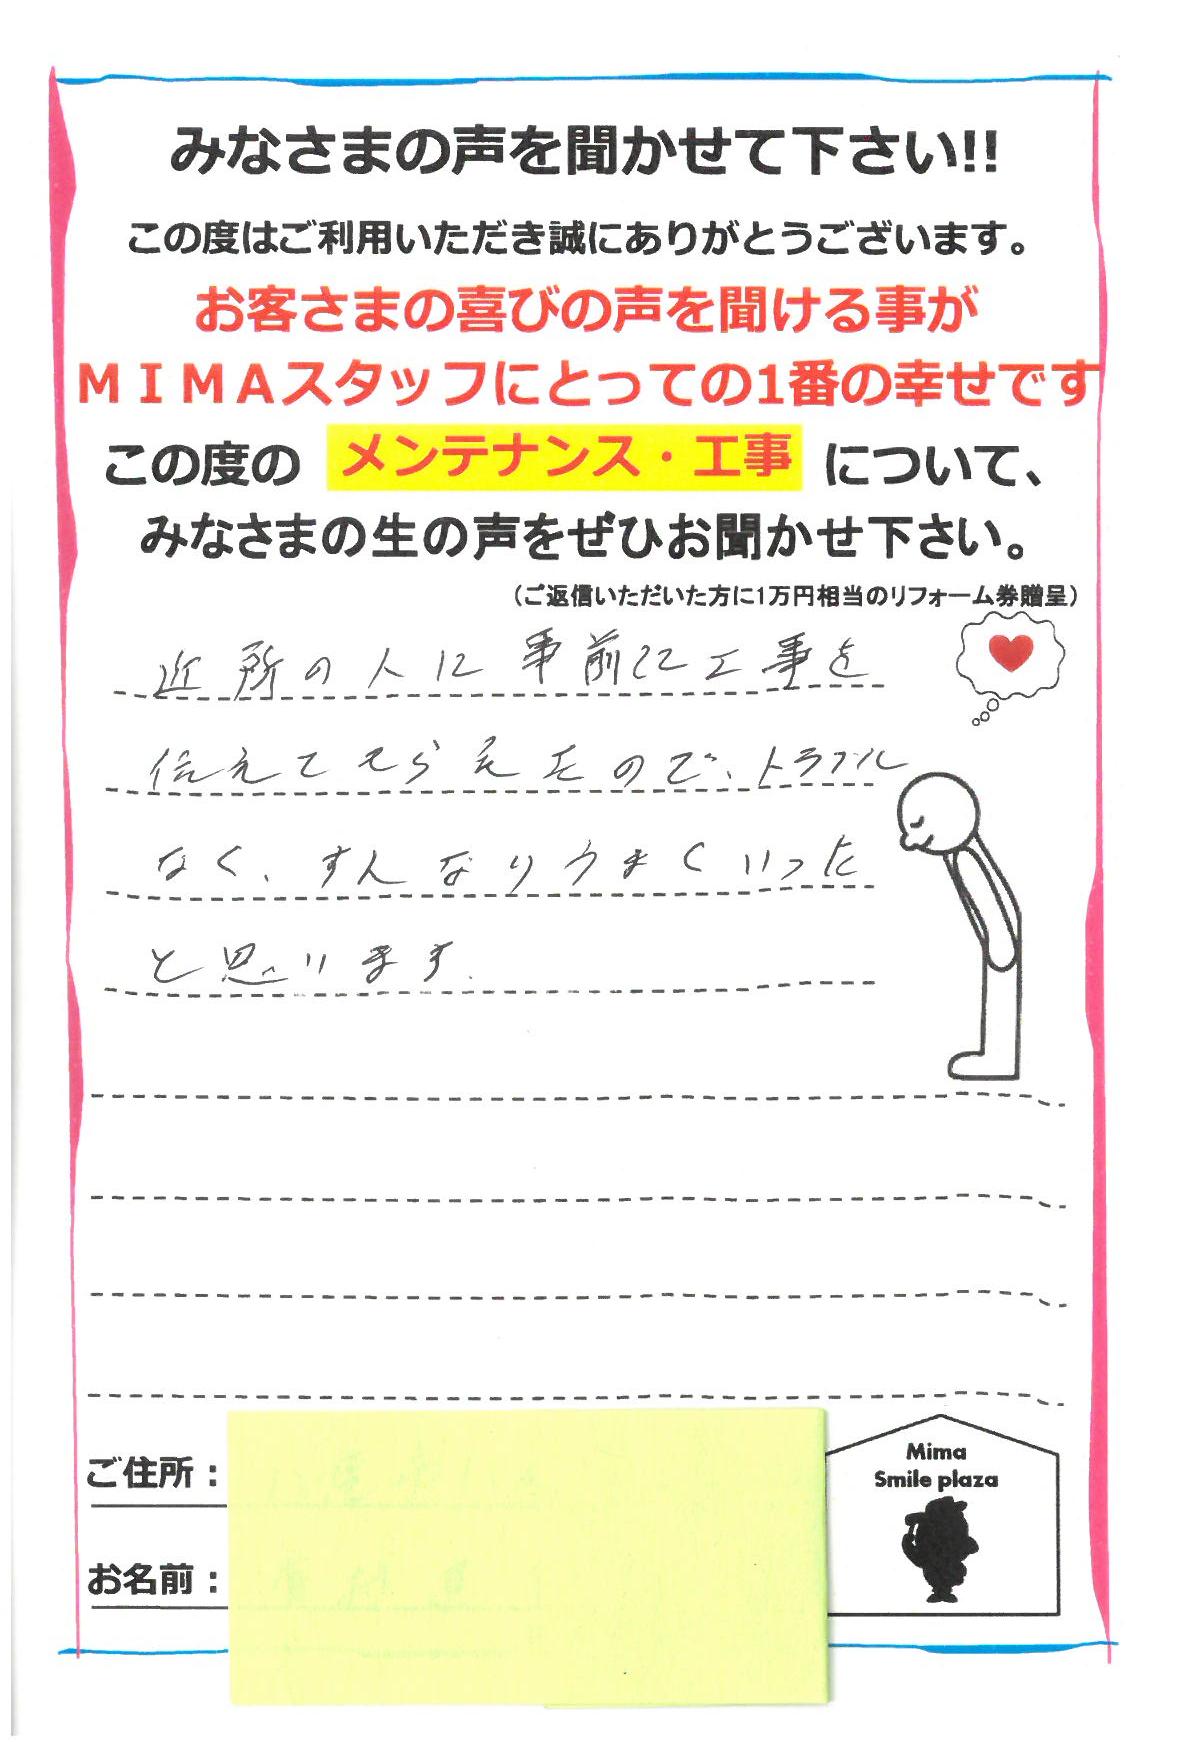 みなさまの声を聞かせて下さい!!
この度はご利用いただき誠にありがとうございます。
お客さまの喜びの声を聞ける事が
ＭＩＭＡスタッフにとっての1番の幸せです
この度の メンテナンス・工事 について、
みなさまの生の声をぜひお聞かせ下さい。
（ご返信いただいた方に1万円相当のリフォーム券贈呈）
近所の人に事前に工事を
伝えてもらえたので、トラブル
なく、すんなりうまくいった
と思います.
Mima
Smile plaza
ご住所：
お名前：